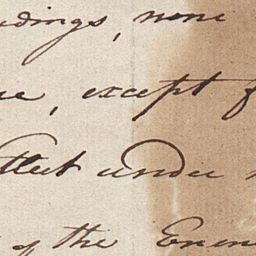 dings, none
, except f
under
of the Enem